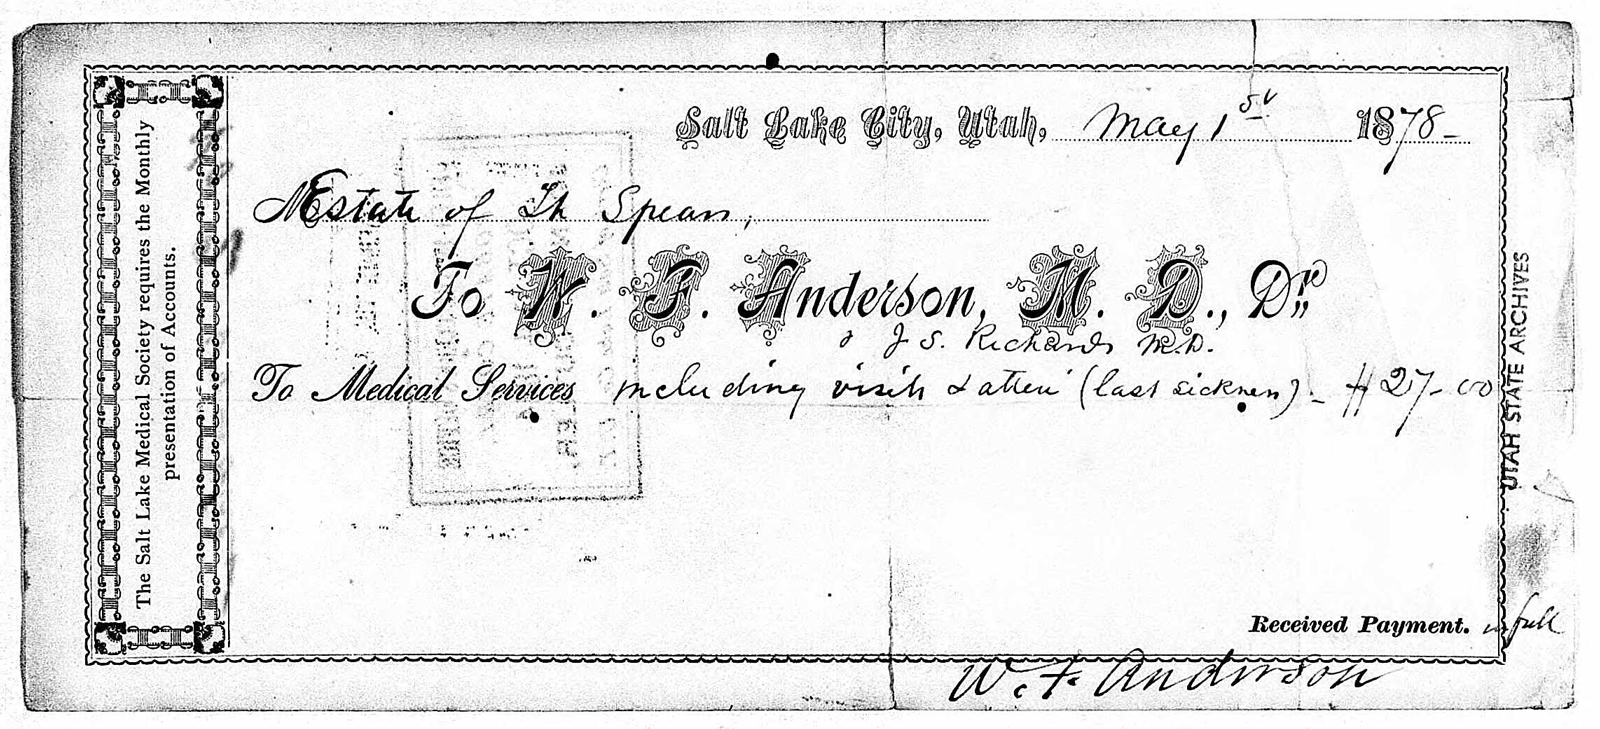 The Salt Lake Medical Society requires the Monthly
presentation of Accounts.
Salt Lake City, Utah, May 1st 1878-
Estate of Th Spears,
To W. F. Anderson, M. D., Dr.
& J S. Richards M.D.
To Medical Services including visits & atten (last sickness). - $27-00
Received Payment. in full
W. F. Anderson
UTAH STATE ARCHIVES